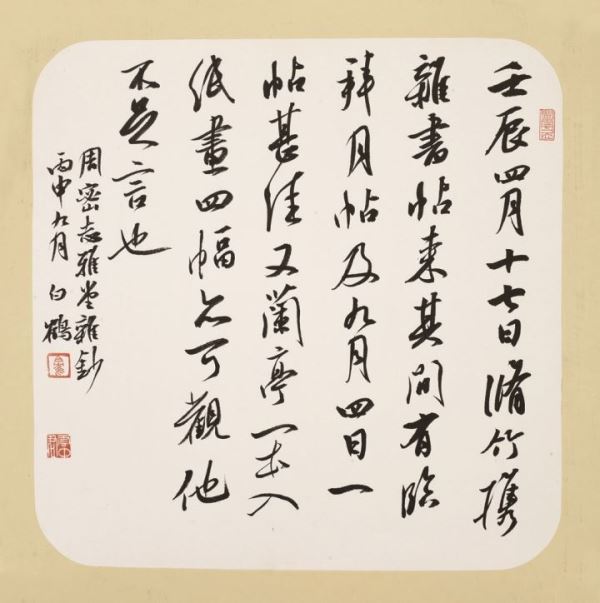 壬辰四月十七日脩竹携
雜書帖来其間有臨
拜月帖及九月四日一
帖甚佳又蘭亭一本入
紙畫四幅亦可觀他
不足言也
周密志雅堂雜鈔
丙申九月 白鶴